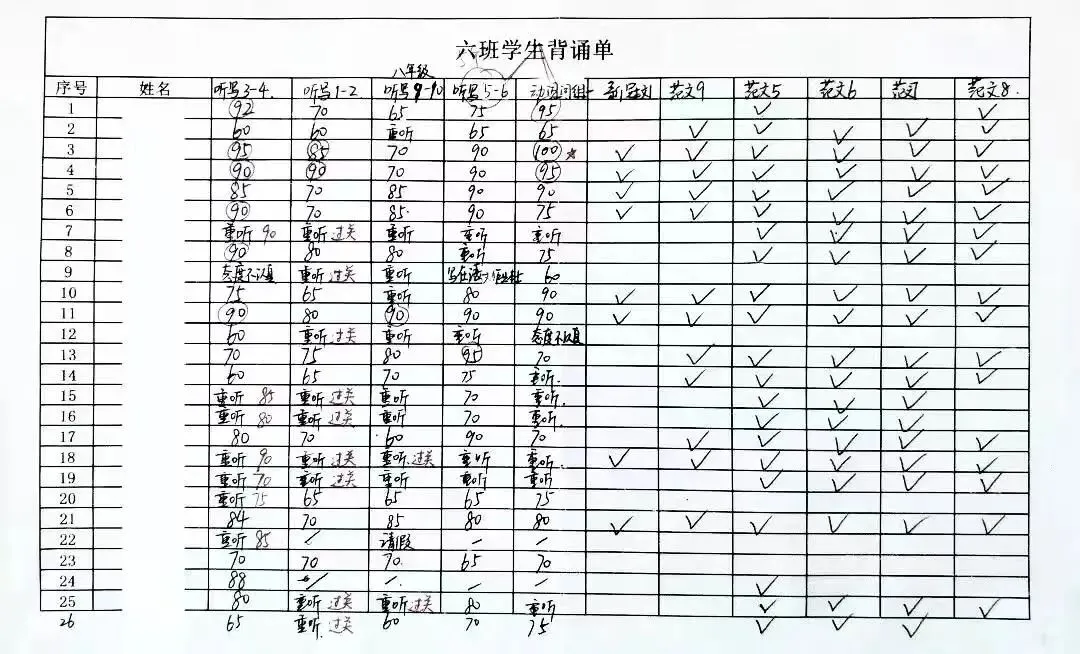 六班学生背诵单
八年级
序号 姓名 听写3-4 听写1-2 听写9-10 听写5-6 范文9 范文5 范文6 范文7 范文8
1 92 70 65 75 95 ✓ ✓
2 60 60 重听 65 65 ✓ ✓ ✓ ✓ ✓
3 95 85 70 90 100 ★ ✓ ✓ ✓ ✓ ✓ ✓
4 90 90 70 90 95 ✓ ✓ ✓ ✓ ✓ ✓
5 85 70 85 90 90 ✓ ✓ ✓ ✓ ✓ ✓
6 90 70 85 90 75 ✓ ✓ ✓ ✓ ✓ ✓
7 重听 90 重听 过关 重听 重听 重听 ✓ ✓ ✓ ✓
8 90 80 80 重听 75 ✓ ✓ ✓ ✓
9 态度不认真 重听 过关 重听 60
10 75 65 重听 80 90 ✓ ✓ ✓ ✓ ✓ ✓
11 90 80 90 90 90 ✓ ✓ ✓ ✓ ✓ ✓
12 60 重听 过关 重听 重听 态度不认真
13 70 75 80 95 70 ✓ ✓ ✓ ✓ ✓
14 60 65 70 75 重听. ✓ ✓ ✓ ✓ ✓
15 重听 85 重听 过关 重听 70 重听. ✓ ✓ ✓
16 重听 80 重听 过关 重听 70 重听. ✓ ✓ ✓
17 80 70 60 90 70 ✓ ✓ ✓ ✓ ✓
18 重听 90 重听 过关 重听 过关 重听 重听. ✓ ✓ ✓ ✓ ✓ ✓
19 重听 70 重听 过关 重听 重听 重听 ✓ ✓ ✓ ✓
20 重听 75 65 65 65 75
21 84 70 85 80 80 ✓ ✓ ✓ ✓ ✓ ✓
22 重听 85 / 请假 — —
23 70 70 70 65 70
24 88 / / — / ✓
25 80 重听 过关 重听 过关 80 重听 ✓ ✓ ✓ ✓
26 65 重听. 过关 60 70 75 ✓ ✓ ✓